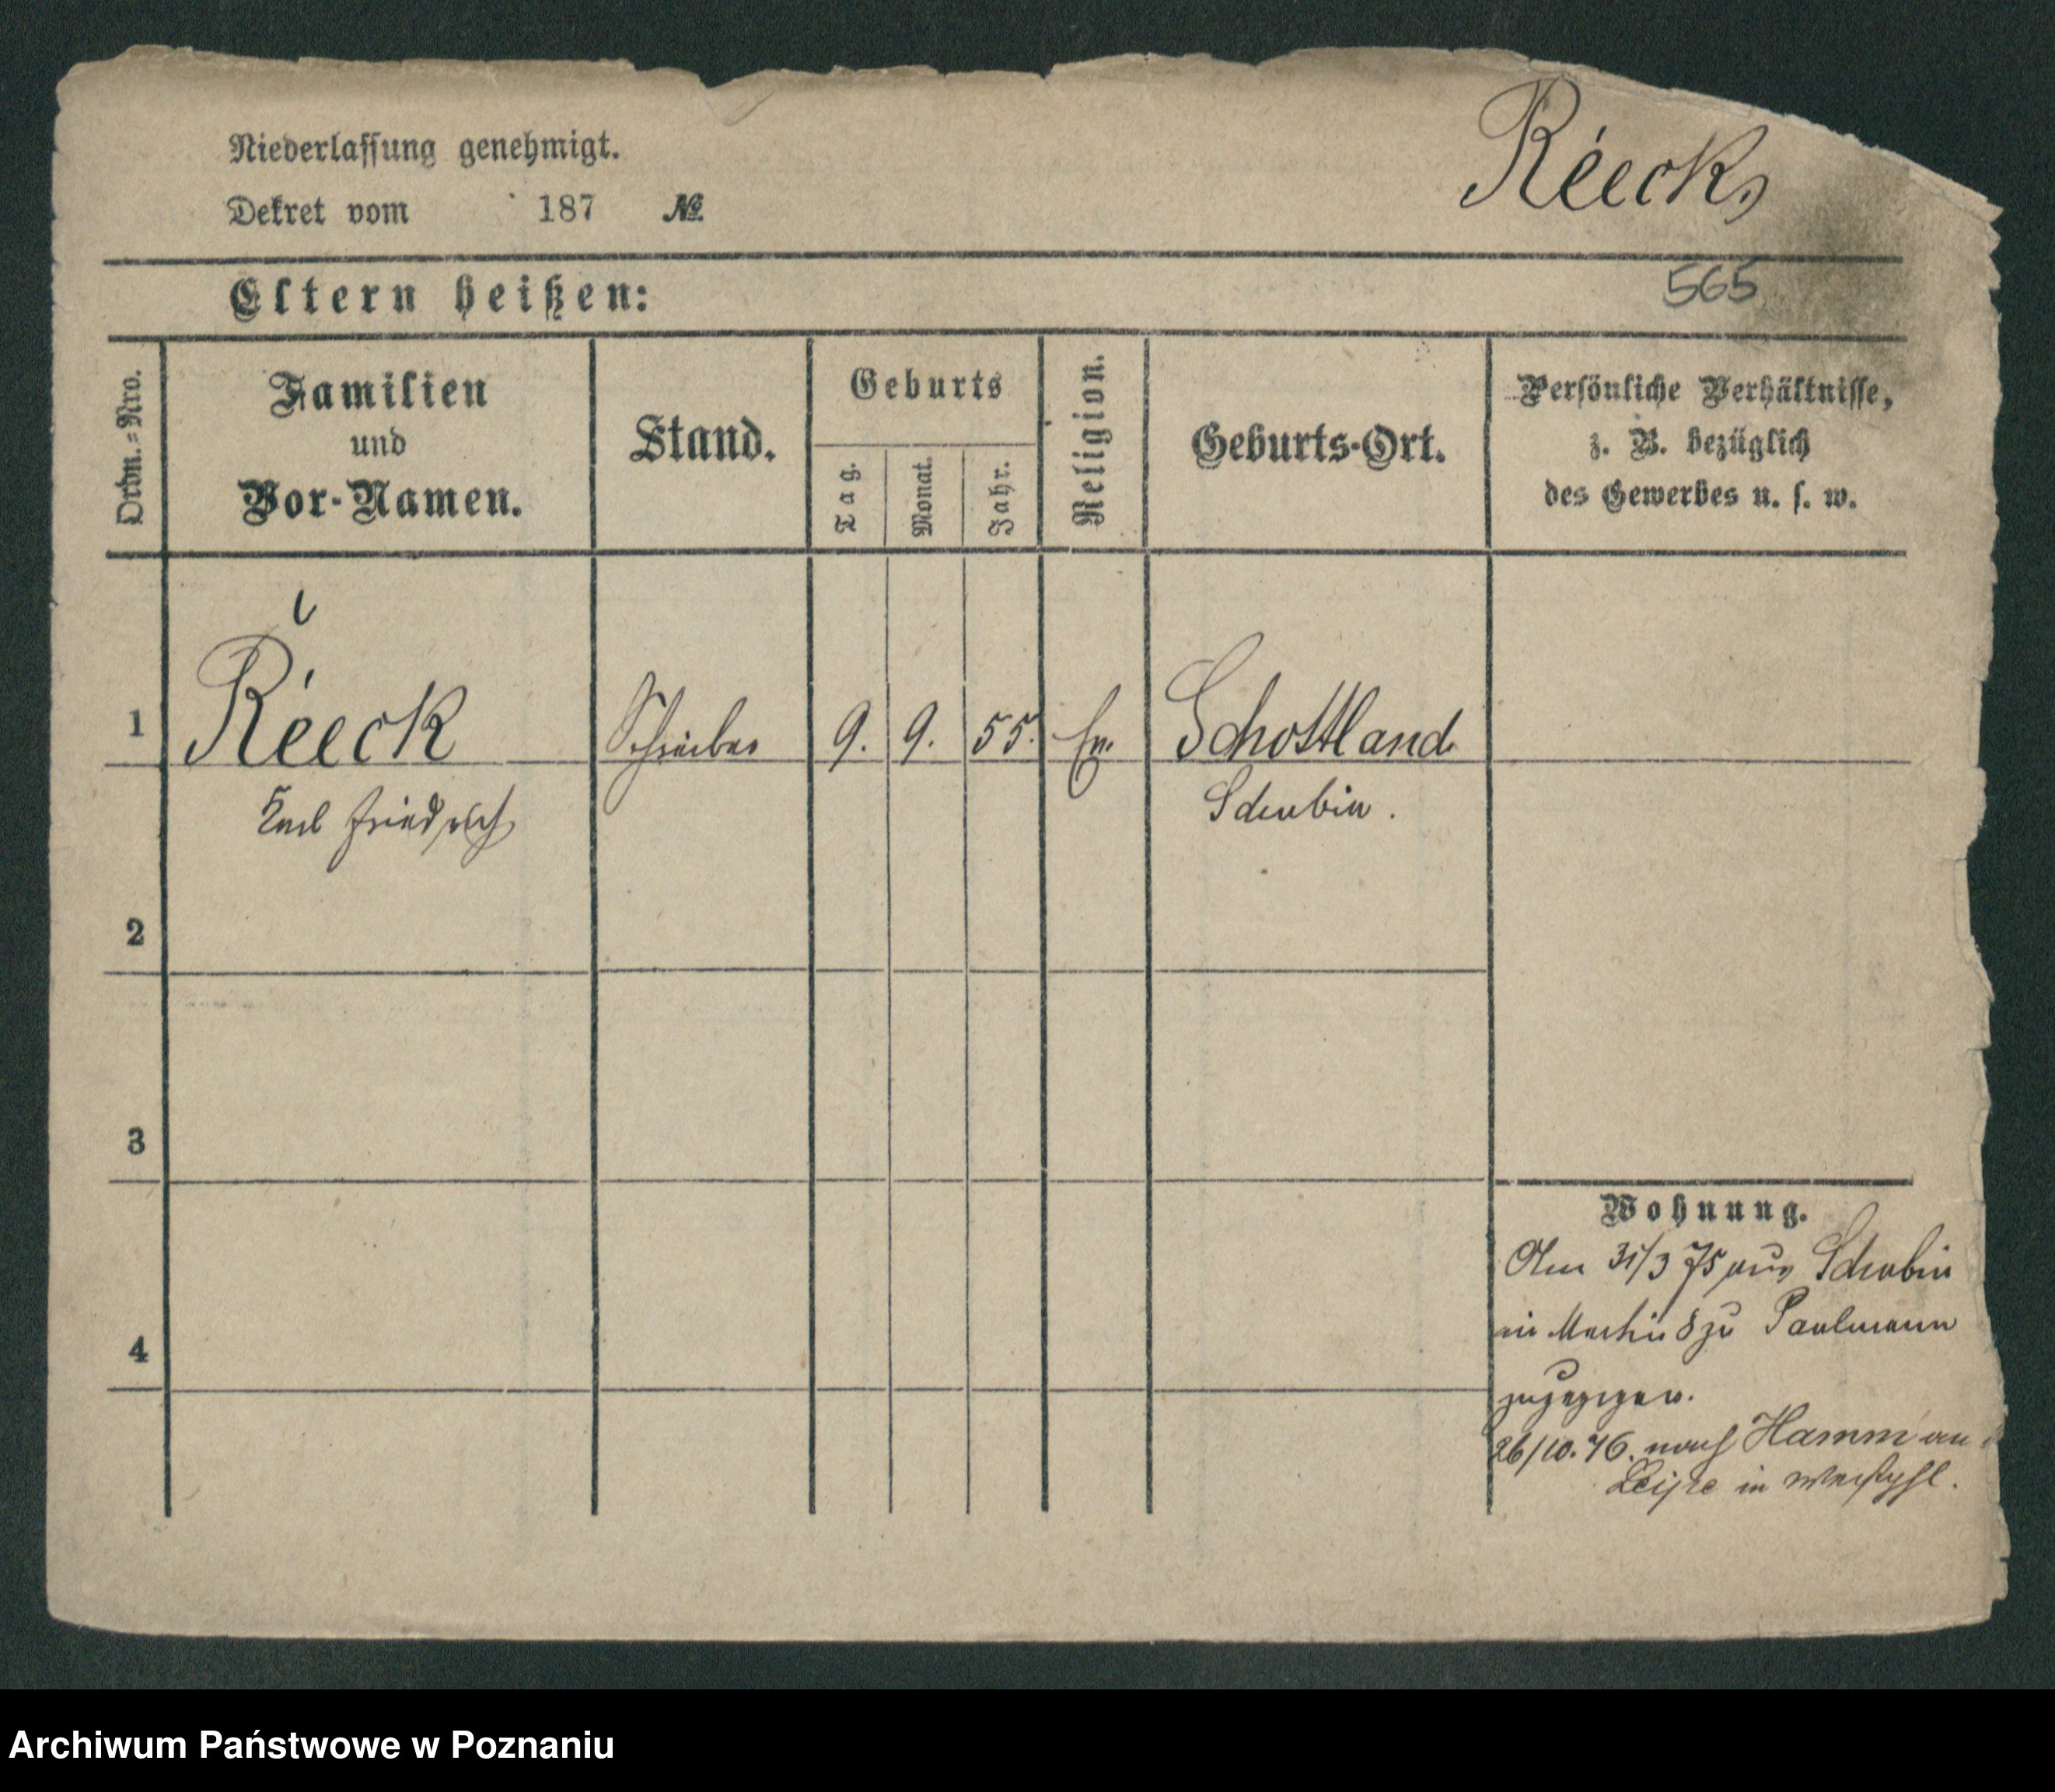 Niederlassung genehmigt.
Réeck
Dekret vom 187 №
Eltern heißen:
565
Ordn.=Nro.
Familien
und
Vor-Namen.
Stand.
Geburts
Tag.
Monat.
Jahr.
Religion.
Geburts-Ort.
Persönliche Verhältnisse,
z. B. bezüglich
des Gewerbes u. s. w.
1 Réeck Schreiber 9. 9. 55. Ev. Schottland
Karl Friedrich Schubin.
2
3
Wohnung.
Am 31/3 75 aus Schubin
8 zu Paulmann
zugezogen.
4
26/10. 76. nach Hamm an
in Westphl.
Archiwum Państwowe w Poznaniu